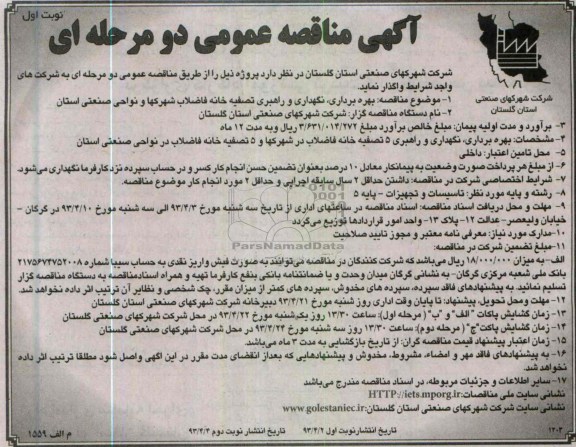 نوبت اول
آگهی مناقصه عمومی دو مرحله ای
شرکت شهرکهای صنعتی
استان گلستان
شرکت شهرکهای صنعتی استان گلستان در نظر دارد پروژه ذیل را از طریق مناقصه عمومی دو مرحله ای به شرکت های
واجد شرایط واگذار نماید.
۱- موضوع مناقصه: بهره برداری، نگهداری و راهبری تصفیه خانه فاضلاب شهرکها و نواحی صنعتی استان
۲- نام دستگاه مناقصه گزار: شرکت شهرکهای صنعتی استان گلستان
۳- برآورد و مدت اولیه پیمان: مبلغ خالص برآورد مبلغ ۳/۶۳۱/۰۱۴/۲۷۲ ریال و به مدت ۱۲ ماه
۴- مشخصات: بهره برداری، نگهداری و راهبری ۵ تصفیه خانه فاضلاب در شهرکها و ۵ تصفیه خانه فاضلاب در نواحی صنعتی استان
۵- محل تامین اعتبار: داخلی
۶- از مبلغ هر پرداخت صورت وضعیت به پیمانکار معادل ۱۰ درصد بعنوان تضمین حسن انجام کار کسر و در حساب سپرده نزد کارفرما نگهداری می‌شود.
۷- شرایط اختصاصی شرکت در مناقصه: داشتن حداقل ۲ سال سابقه اجرایی و حداقل ۲ مورد انجام کار موضوع مناقصه.
۸- رشته و پایه مورد نظر: تاسیسات و تجهیزات - پایه ۵
۹- مهلت و محل دریافت اسناد: اسناد مناقصه در ساعتهای اداری از تاریخ سه شنبه مورخ ۹۳/۴/۳ الی سه شنبه مورخ ۹۳/۴/۱۰ در گرگان -
خیابان ولیعصر- عدالت ۱۲- پلاک ۱۳- واحد امور قراردادها توزیع می‌گردد
۱۰- مدارک مورد نیاز: معرفی نامه معتبر و مجوز تایید صلاحیت
۱۱- مبلغ تضمین شرکت در مناقصه:
الف- به میزان ۱۸/۰۰۰/۰۰۰ ریال می‌باشد که شرکت کنندگان در مناقصه می‌توانند به صورت فیش واریز نقدی به حساب سیبا شماره ۲۱۷۵۶۷۴۷۵۲۰۰۸
بانک ملی شعبه مرکزی گرگان- به نشانی گرگان میدان وحدت و یا ضمانتنامه بانکی بنفع کارفرما تهیه و همراه اسناد مناقصه به دستگاه مناقصه گزار
تسلیم نمایند. به پیشنهادهای فاقد سپرده، سپرده های مخدوش، سپرده های کمتر از میزان مقرر، چک شخصی و نظایر آن ترتیب اثر داده نخواهد شد.
۱۲- مهلت و محل تحویل، پیشنهاد: تا پایان وقت اداری روز شنبه مورخ ۹۳/۴/۲۱ دبیرخانه شرکت شهرکهای صنعتی استان گلستان
۱۳- زمان گشایش پاکات "الف" و "ب" (مرحله اول): ساعت ۱۳/۳۰ روز یکشنبه مورخ ۹۳/۴/۲۲ در محل شرکت شهرکهای صنعتی گلستان
۱۴- زمان گشایش پاکات "ج" (مرحله دوم): ساعت ۱۳/۳۰ روز سه شنبه مورخ ۹۳/۴/۲۴ در محل شرکت شهرکهای صنعتی گلستان
۱۵- زمان اعتبار پیشنهاد قیمت مناقصه گران: از تاریخ بازگشایی به مدت ۳ ماه می‌باشد.
۱۶- به پیشنهادهای فاقد مهر و امضاء، مشروط، مخدوش و پیشنهادهایی که بعد از انقضای مدت مقرر در این آگهی واصل شود مطلقا ترتیب اثر داده
نخواهد شد.
۱۷- سایر اطلاعات و جزئیات مربوطه، در اسناد مناقصه مندرج می‌باشد
نشانی سایت ملی مناقصات: HTTP://iets.mporg.ir
نشانی سایت شرکت شهرکهای صنعتی استان گلستان: www.golestaniec.ir
تاریخ انتشار نوبت اول ۹۳/۴/۲ تاریخ انتشار نوبت دوم ۹۳/۴/۳
م الف ۱۵۵۹
ParsNamadData